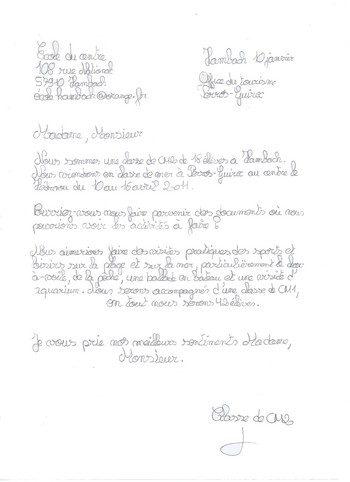 Ecole du centre
108 rue National
57910 Hambach
école.hambach@orange.fr
Hambach 10 janvier
Office du tourisme
Perros-Guirec
Madame, Monsieur
Nous sommes une classe de CM2 de 18 élèves à Hambach.
Nous viendrons en classe de mer à Perros-Guirec au centre de
du 10 au 16 avril 2011.
Pourriez-vous nous faire parvenir des documents où nous
pourrions voir les activités à faire ?
Nous aimerions faire des visites pratiques des sports et
loisirs sur la plage et sur la mer, particulièrement le char
à-voile, de la pêche, une ballade en bateau et une visite d'
aquarium. Nous serons accompagnés d'une classe de CM1,
en tout nous serons 42 élèves.
Je vous prie nos meilleurs sentiments Madame,
Monsieur.
Classe de CM2